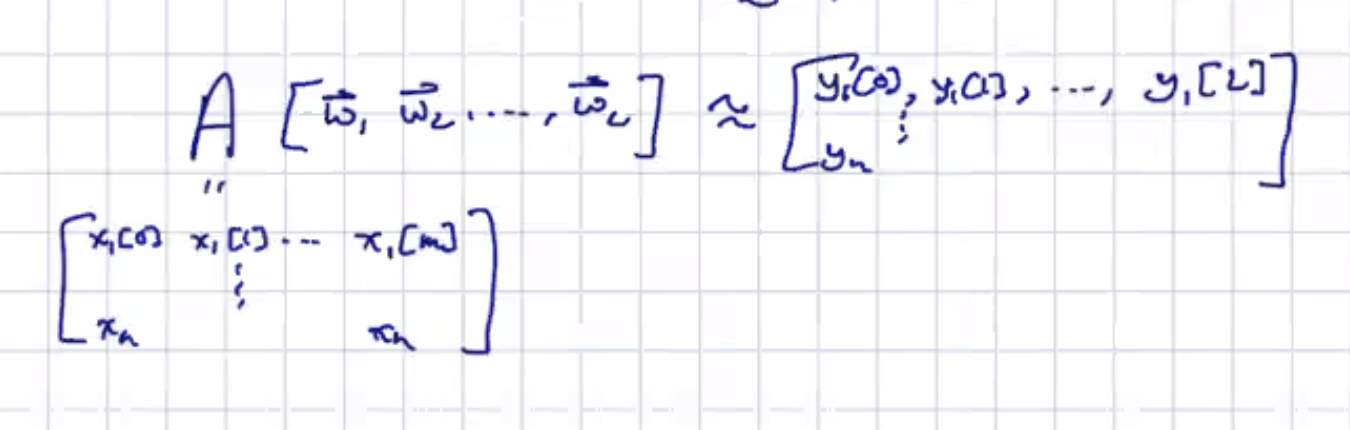 A [w⃗₁, w⃗₂, ...., w⃗_L] ≈ [y₁[0], y₁[1], ..., y₁[L]
⋮
yₙ ]
"
[x₁[0] x₁[1] ... x₁[m]
⋮
xₙ xₙ]